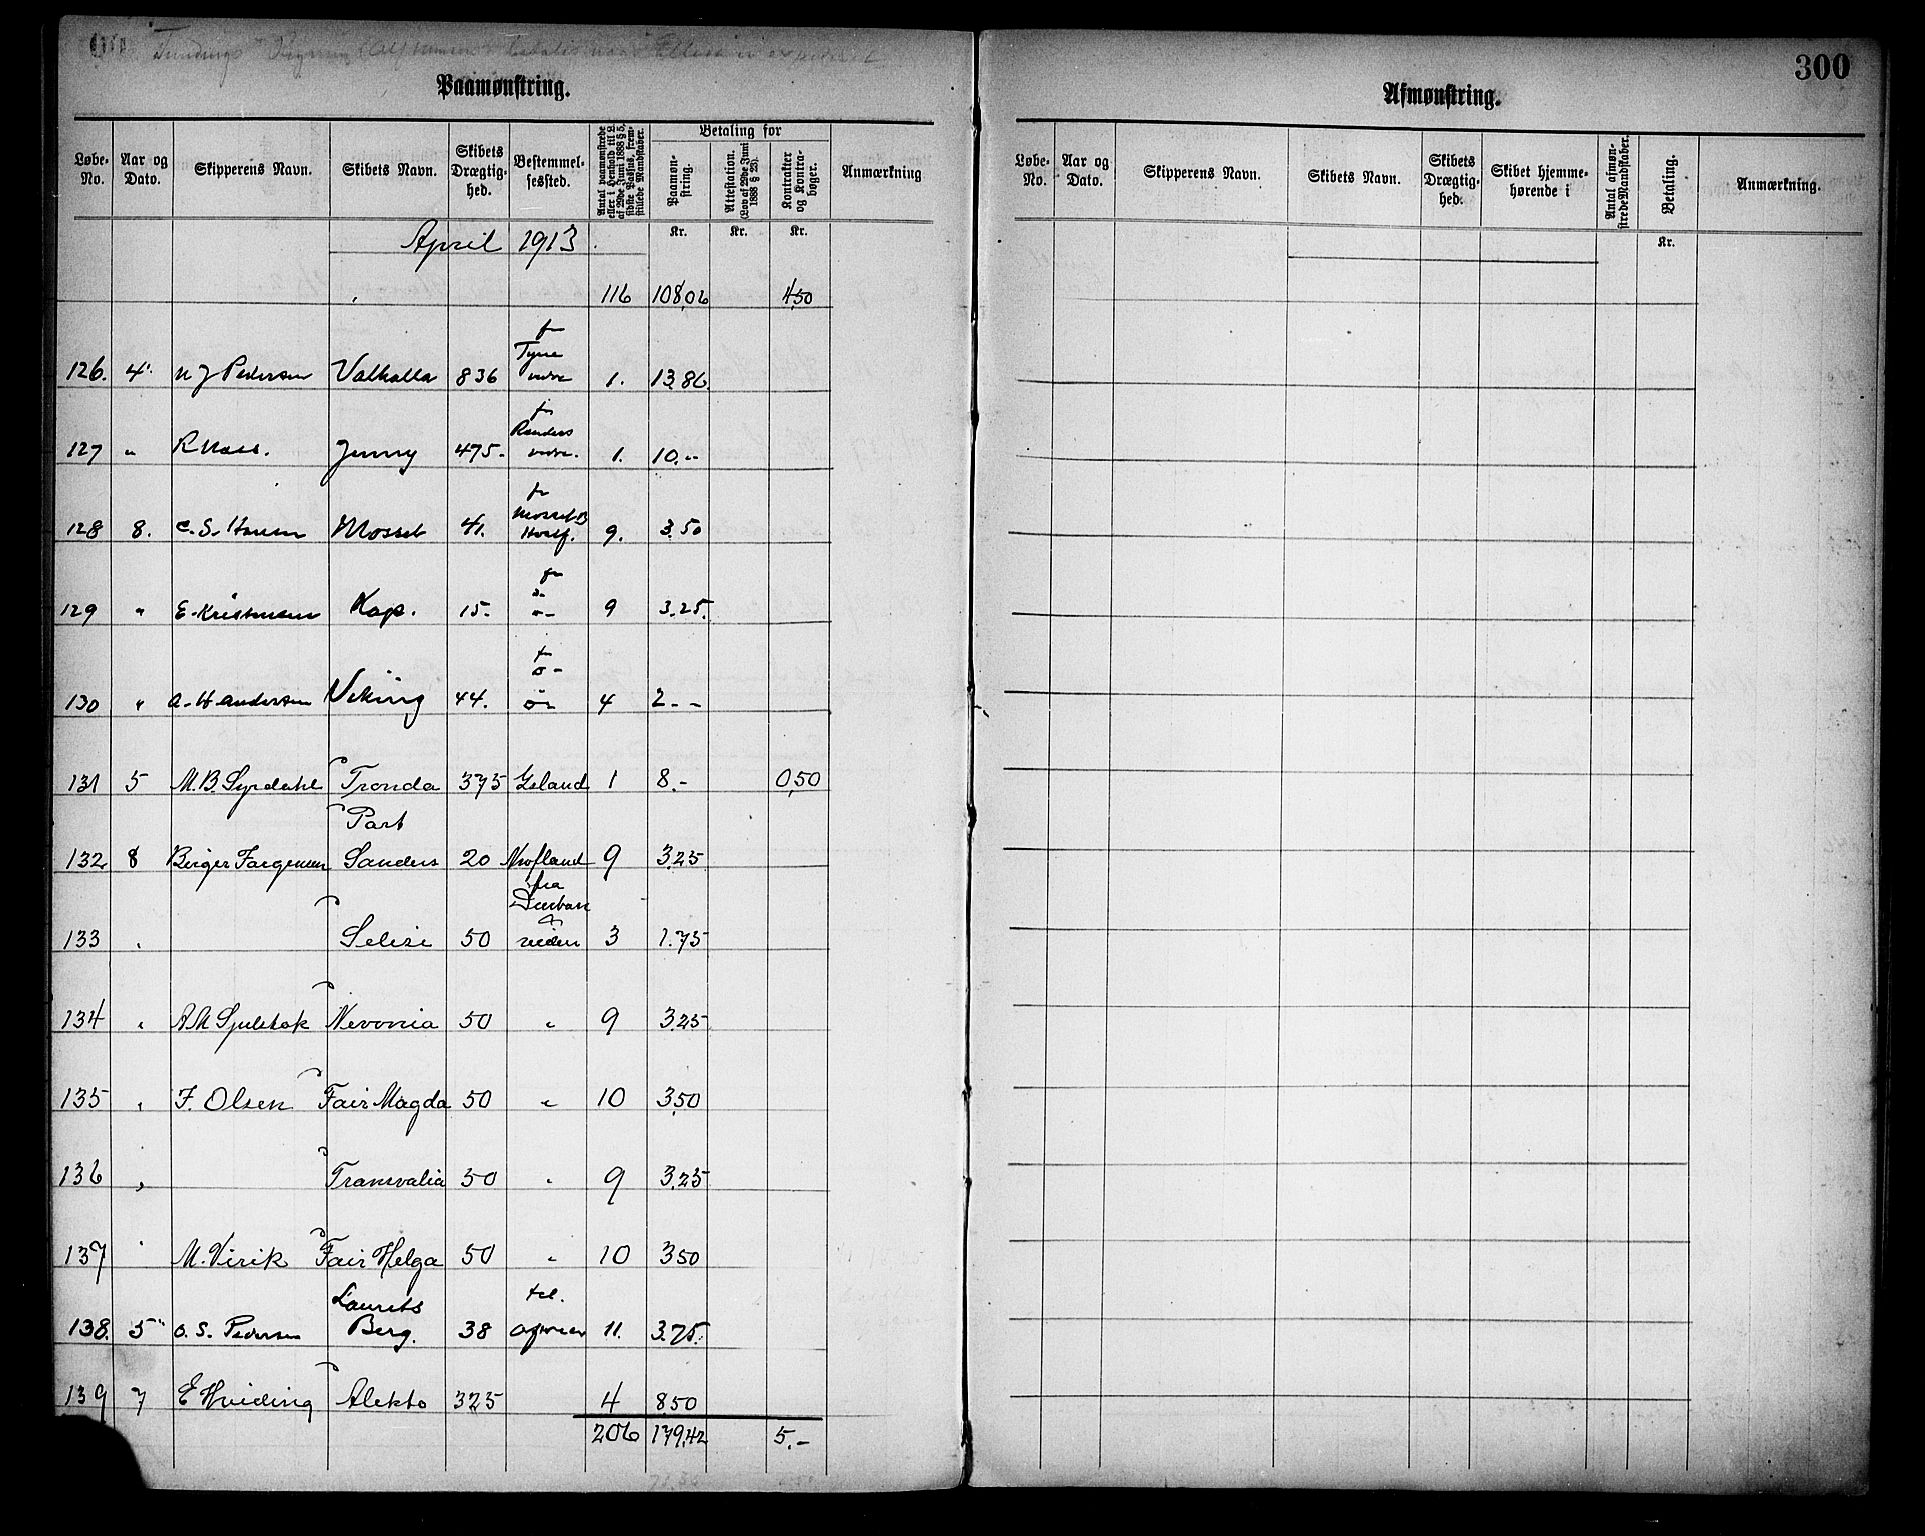 300
Paamønstring.
Afmønstring.
Løbe-No. Aar og Dato. Skipperens Navn. Skibets Navn. Skibets Drægtighed. Bestemmelsessted. Antal paamønstrede eller i Henhold til L. af 29de Juni 1888 § 5, sidste Passus, fremstillede Mandskaber. Betaling for Paamønstring. Attestation. (Lov af 29de Juni 1888 § 23). Kontrakter og Kontrabøger. Anmærkning
Løbe-No. Aar og Dato. Skipperens Navn. Skibets Navn. Skibets Drægtighed. Skibet hjemmehørende i Antal afmønstrede Mandskaber. Betaling. Anmærkning.
Kr. Kr. Kr. Kr.
April 1913.
116 108,06 4,50
126. 4. N J Pedersen Valhalla 836 fr Tyne 1. 13,86
127 " Jenny 475. fr Randers 1. 10.--
128 8. C. S. Hansen Mossel 41. fr Mossel B 9. 3.50
129 " E. Kristensen Kap. 15. fr 9 3.25.
130 " A. H Andersen Viking 44. 4 2.--
131 5 M. B. Syrdahl Tronda 375 Island 1 8.- 0,50
132 8 Birger Jørgensen Port Sanders 20 Nwfland 9 3,25
133 Selisi 50 fra Durban 3 1.75
134 " Nevonia 50 " 9 3,25
135 " F. Olsen Fair Magda 50 " 10 3,50
136 " Transvalia 50 " 9 3,25
137 " M. Virik Fair Helga 50 " 10 3,50
138. 5 O. S. Pedersen Laurits Berg. 38 til 11. 3.75.
139 7 E Hviding Alekto 325 4 8,50
206 179,42 5.-